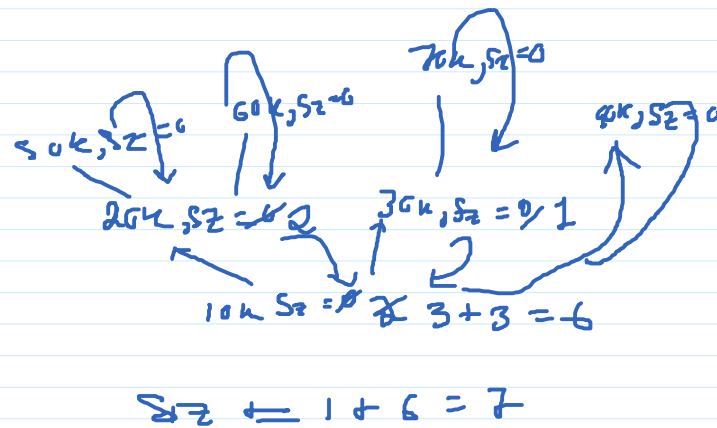 70k, Sz=0
60k, Sz=0
90k, Sz=0
50k, Sz=0
20k, SZ = 0 2
30k, Sz = 0 1
10k Sz = 0 2 3 + 3 = 6
SZ ← 1 + 6 = 7